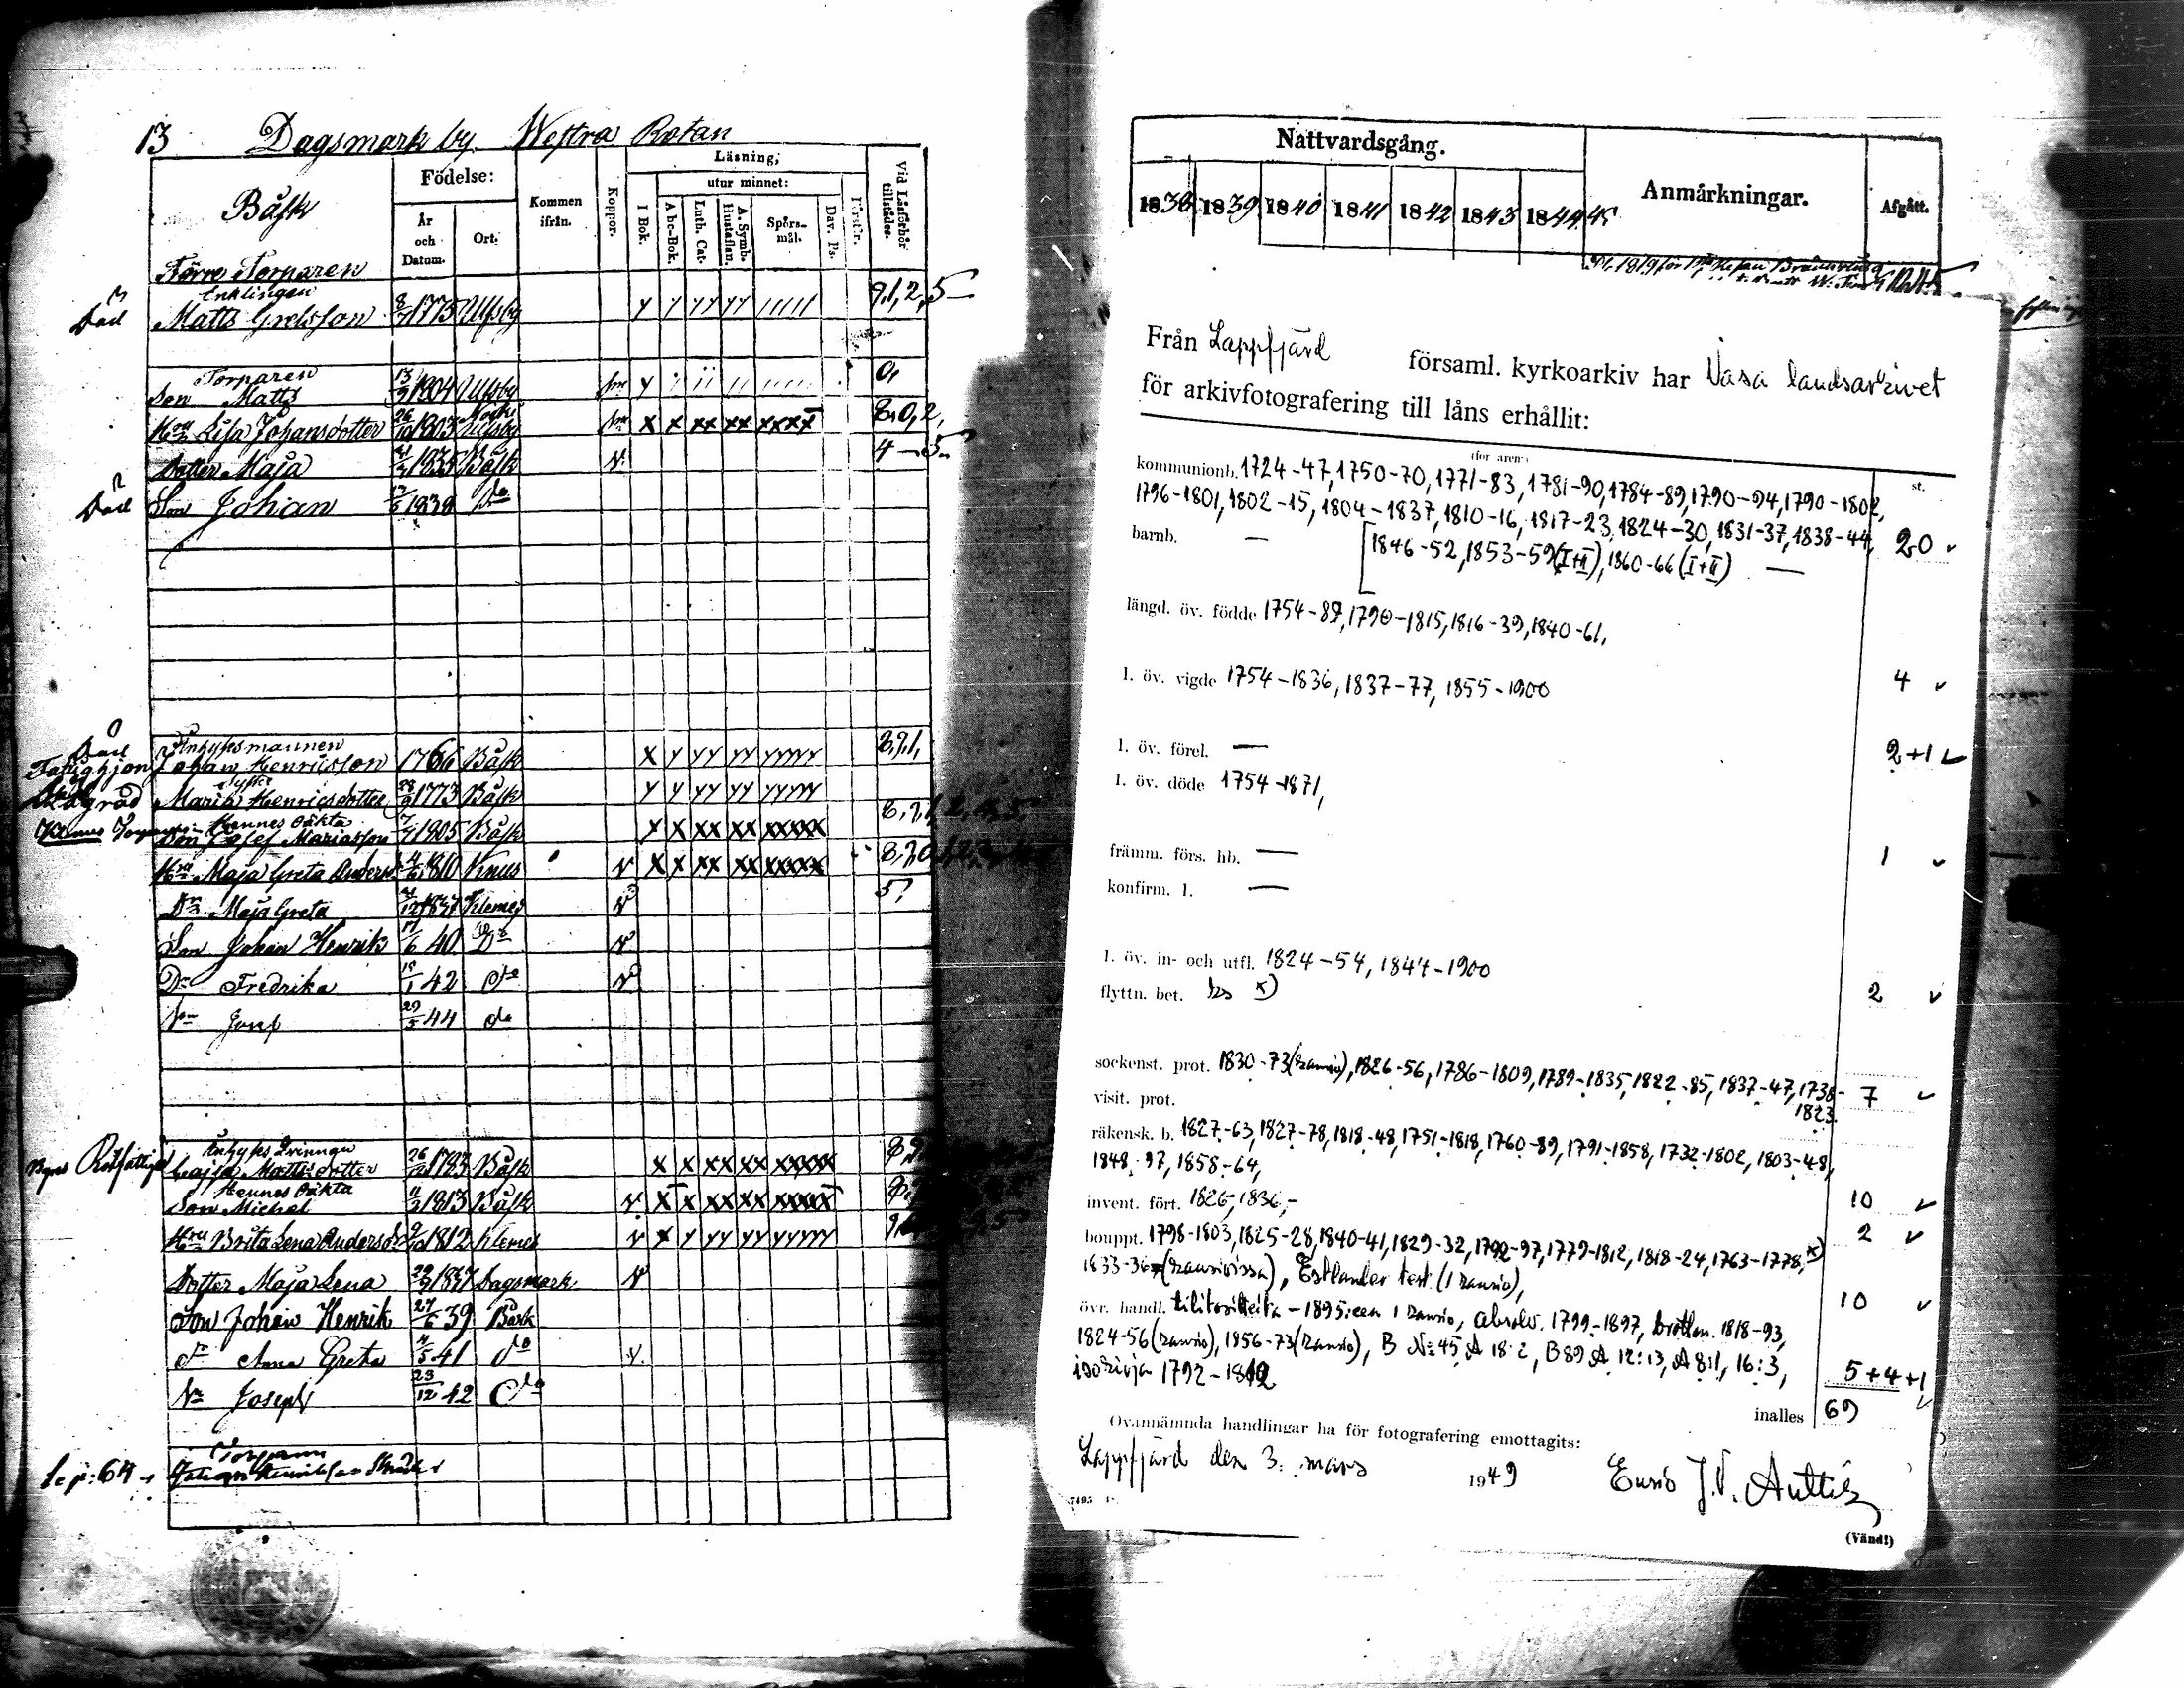 13 Dagsmark by. Westra Rotan
Båsk
Födelse:
År och Datum.
Ort.
Kommen ifrån.
Koppor.
Läsning,
utur minnet:
I Bok.
A bc-Bok.
Luth. Cat.
A. Symb. Hustaflan.
Spörsmål.
Dav. Ps.
Förstår.
Vid Läsförhör tillstädes.
Förre Torparen
Enklingen
Död Matts Grelsson 8/7 1775 Ulfsby 9,1,2,5
Torparen
Son Matts 13/9 1804 Ulfsby
Hru Lisa Johansdotter 26/10 1803 Ulfsby 8,0,2,
Dotter Maja 1835 Båsk 4-5
Död Son Johan 1838 Do
Inhysmannen
Död
Fattighjon Johan Henricsson 1766 Båsk 8,9,1,
Maria Henricsdotter 28/9 1773 Båsk
Hennes oäkta
Son Josef Mariasson 7/4 1805 Båsk
Hru Maja Greta Anders 1810 Knus
Dr Maja Greta 21/12 1837 Klemes 5?
Son Johan Henrik 17/6 40. Do
Dr Fredrika 15/1 42 do
Sn Josep 29/5 44 do
Inhyses Qvinnan
Cajsa Mattsdotter 26/12 1783 Båsk
Hennes oäkta
Son Michel 11/3 1813 Båsk
Hru Brita Lena Andersdr 9/10 1812 Klemes
Dotter Maja Lena 29/9 1837 Dagsmark
Son Johan Henrik 27/6 39 Båsk
dr Anna Greta 4/5 41 do
Sn Joseph 23/12 42 do
Torparen
Se p: 64 Johan Henriksson
Nattvardsgång.
1838 1839 1840 1841 1842 1843 1844 45
Anmärkningar.
Afgått.
Från Lappfjärd församl. kyrkoarkiv har Vasa landsarkivet
för arkivfotografering till låns erhållit:
(för åren)
st.
kommunionb. 1724-47, 1750-70, 1771-83, 1781-90, 1784-89, 1790-94, 1790-1802,
1796-1801, 1802-15, 1804-1837, 1810-16, 1817-23, 1824-30, 1831-37, 1838-44, 20
barnb. — [1846-52, 1853-59 (I+II), 1860-66 (I+II) —
längd. öv. födde 1754-89, 1790-1815, 1816-39, 1840-61.
4
l. öv. vigde 1754-1836, 1837-77, 1855-1900
2+1
l. öv. förel. —
l. öv. döde 1754-1871,
1
främm. förs. hb. —
konfirm. l. —
l. öv. in- och utfl. 1824-54, 1844-1900
2
flyttn. bet. ks x)
sockenst. prot. 1830-73 (kansio), 1826-56, 1786-1809, 1789-1835, 1822-85, 1837-47, 1738-1823. 7
visit. prot.
räkensk. b. 1827-63, 1827-78, 1818-48, 1751-1818, 1760-89, 1791-1858, 1732-1802, 1803-48,
1848-97, 1858-64,
10
invent. fört. 1826, 1836, -
2
bouppt. 1798-1803, 1825-28, 1840-41, 1829-32, 1792-97, 1779-1812, 1818-24, 1763-1778, x)
1833-36 (kansioissa), Estlander test. (1 kansio),
10
övr. handl. tilitositteita -1895:een 1 kansio, absolv. 1799-1897, brottm. 1818-93,
1824-56 (kansio), 1856-73 (kansio), B No 45, A 18:2, B 89, A 12:13, A 8:1, 16:3,
isorivja 1792-1812
5+4+1
inalles 69
Ovannämnda handlingar ha för fotografering emottagits:
Lappfjärd den 3. mars 1949
Eino J.V. Anttila
(Vänd!)